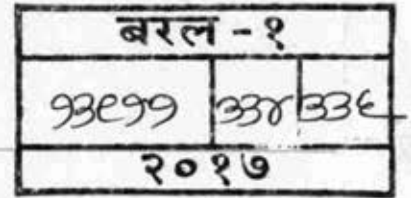 बरल - १
१३९११ ३३४ ३३६
२०१७